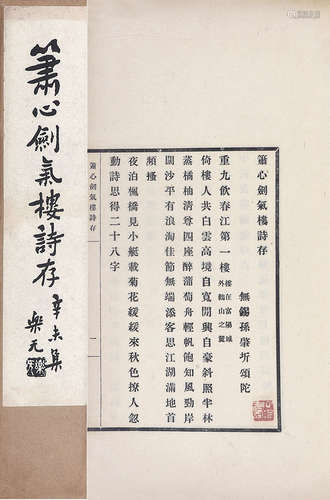 簫心劍氣樓詩存
辛未集
樂元
簫心劍氣樓詩存
無錫孫肇圻頌陀
重九飲春江第一樓 樓在富陽城外鸛山之麓
倚樓人共白雲高境自寬閒興自豪斜照半林
蒸橘柚清尊四座醉蒲萄舟輕帆飽知風勁岸
闊沙平有浪淘佳節無端添客思江湖滿地首
頻搔
夜泊楓橋見小艇載菊花緩緩來秋色撩人忽
動詩思得二十八字
簫心劍氣樓詩存
一